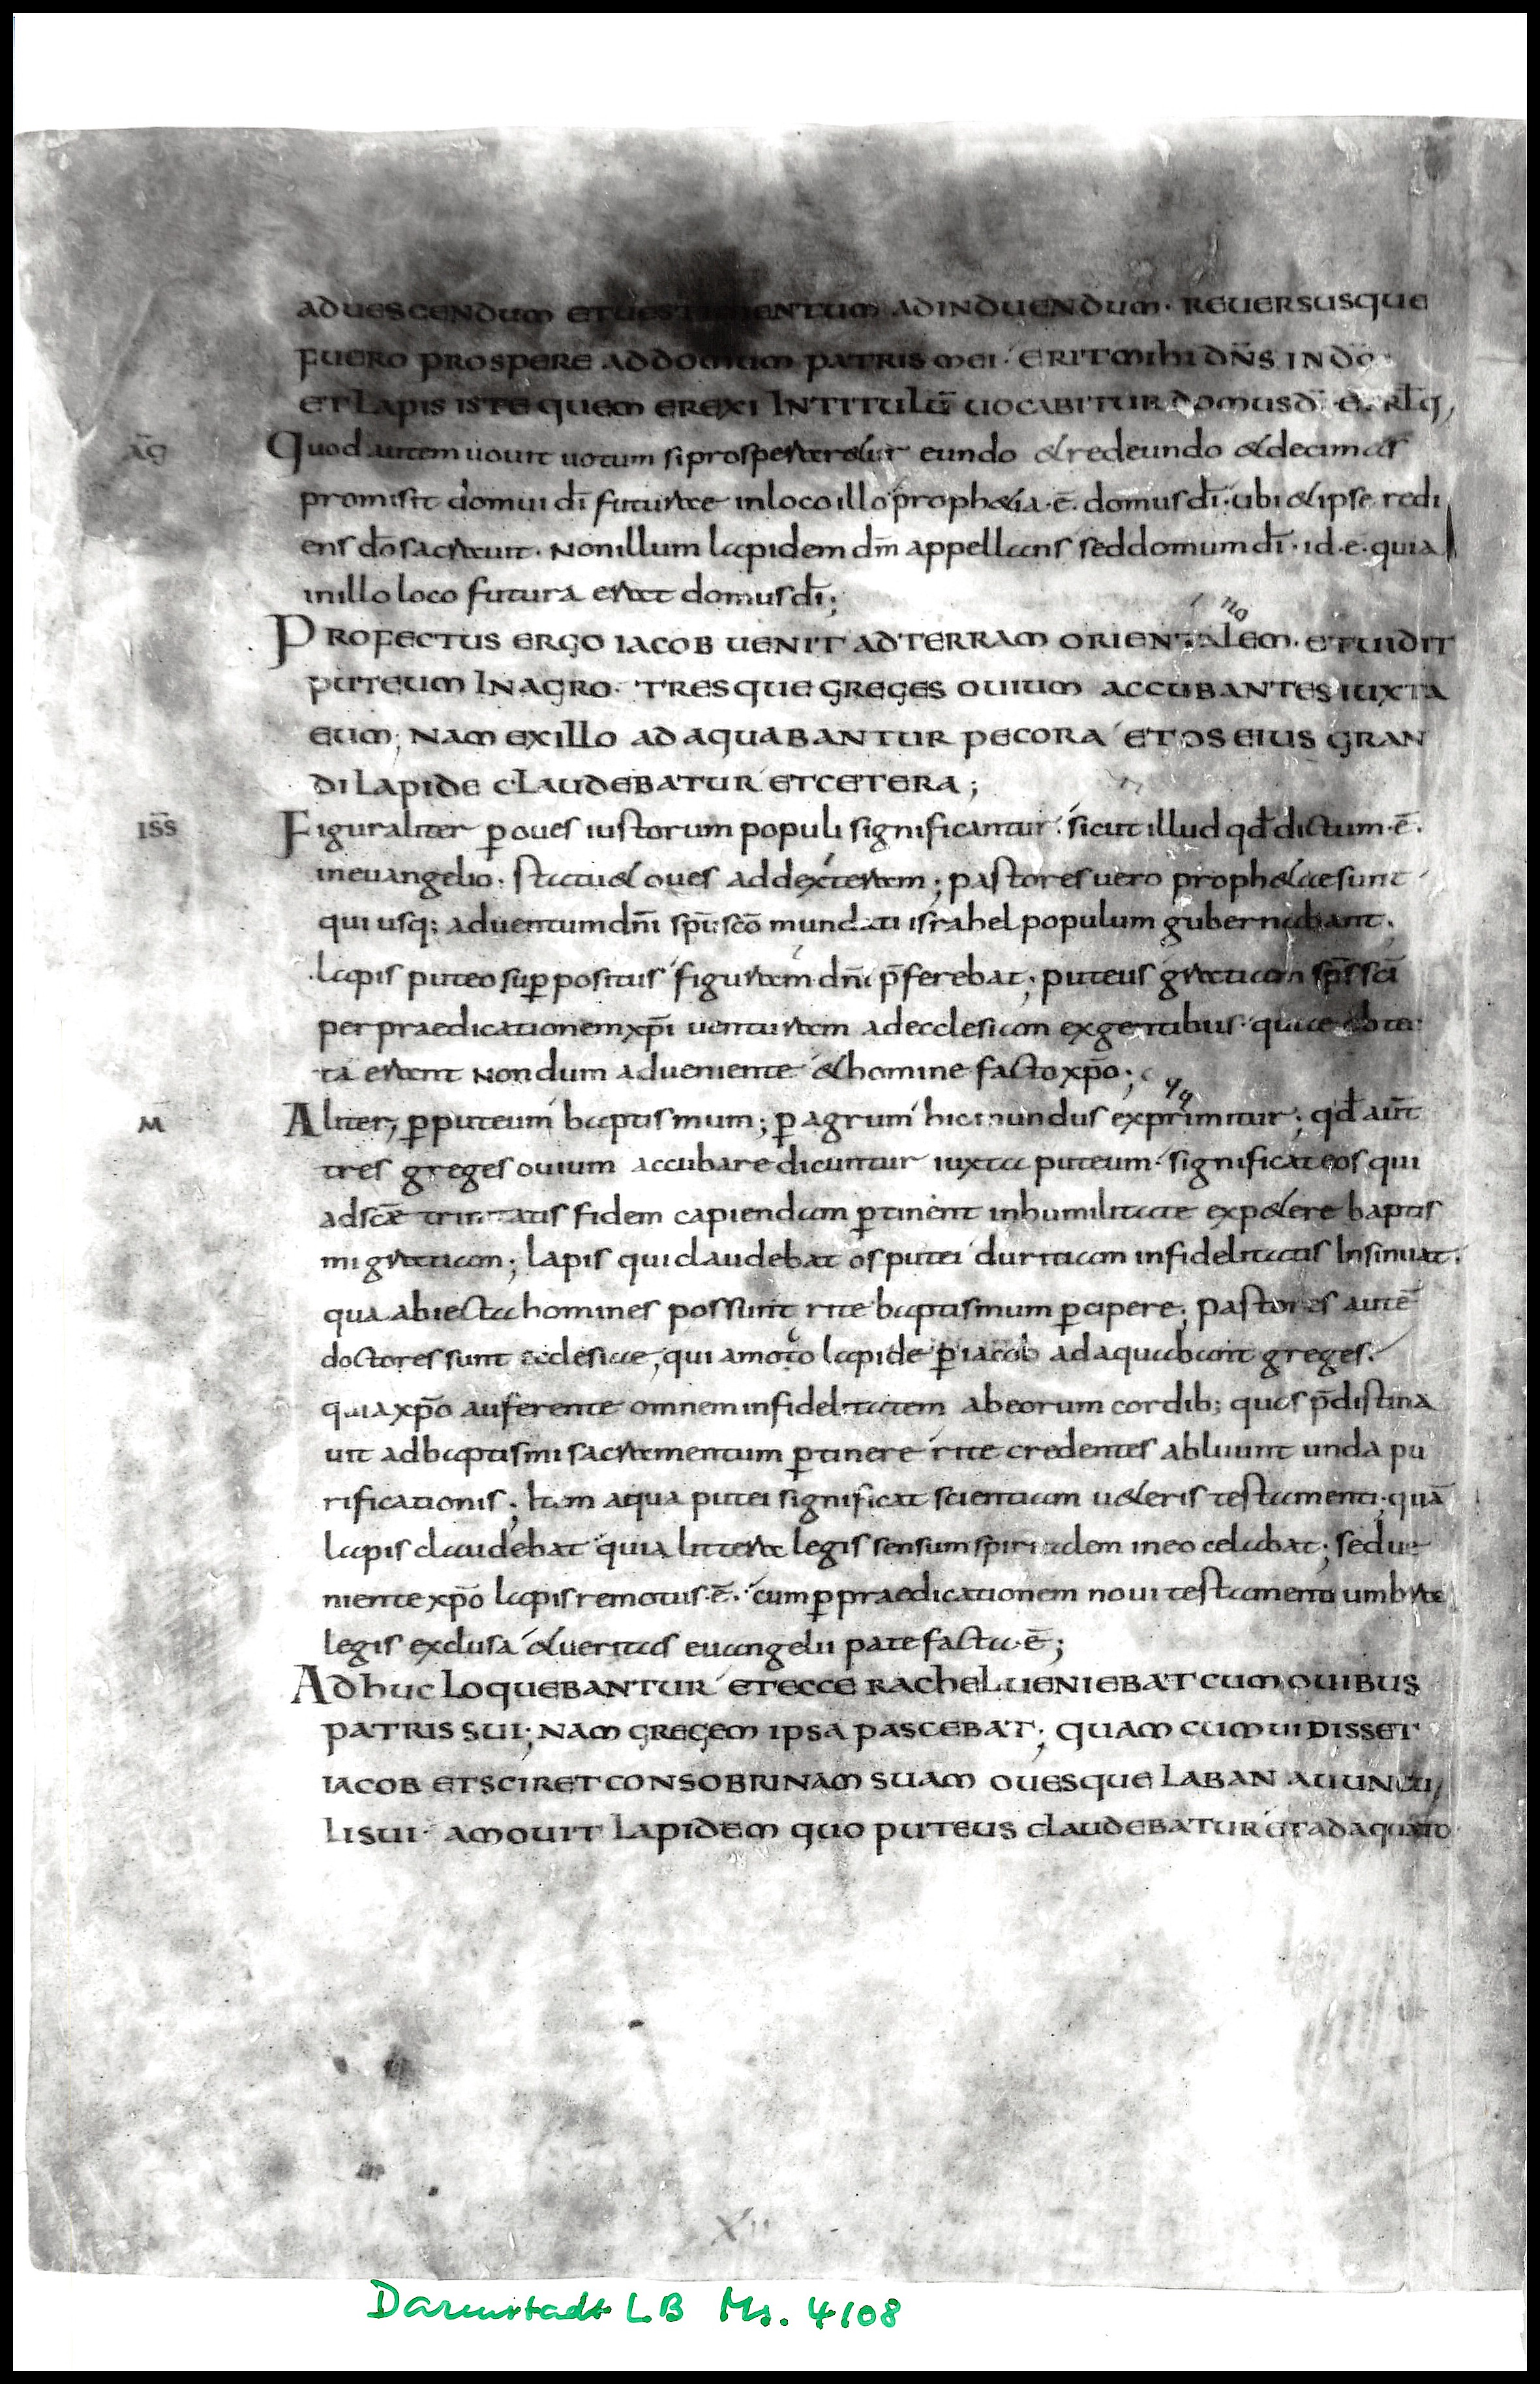 ad uescendum et uestimentum ad induendum· reuersusque
fuero prospere ad domum patris mei· erit mihi dn̄s in dō·
et lapis iste quem erexi in titulū uocabitur domus dī·ē· rl̄q,
āg Quod autem uouit uotum si prosperaretur eundo & redeundo & decimas
promisit domui dī futurae in loco illo proph&ia·ē· domus dī· ubi & ipse redi
ens dō sacrauit· Non illum lapidem dm̄ appellans sed domum dī· id·ē· quia
in illo loco futura erat domus dī;
no
Profectus ergo iacob uenit ad terram orientalem· et uidit
puteum in agro· tresque greges ouium accubantes iuxta
eum; nam ex illo adaquabantur pecora et os eius gran
di lapide claudebatur et cetera;
Iss̄ Figuraliter p̱ oues iustorum populi significantur· sicut illud qd̄ dictum·ē·
in euangelio· statu& oues ad dexteram; pastores uero proph&ae sunt
qui usq; aduentum dn̄i sp̄u sc̄o mundati israhel populum gubernabant·
lapis puteo sup̱positus figuram dn̄i p̄ferebat; puteus gratiam sp̄s sc̄i
per praedicationem xp̄i uenturam ad ecclesiam ex gentibus· quae obtec
ta erant Nondum adueniente & homine facto xp̄o;
M̄ Aliter, p̱ puteum baptismum; p̱ agrum hic mundus exprimitur; qd̄ aut̄
tres greges ouium accubare dicuntur iuxta puteum· significat eos qui
ad sc̄ae trinitatis fidem capiendam p̱tinent in humilitate exp&ere baptis
mi gratiam; lapis qui claudebat os putei duritiam infidelitatis insinuat·
qua abiecta homines possunt rite baptismum p̱cipere; pastores autē
doctores sunt ecclesiae, qui amoto lapide p̱ iacob adaquabant greges·
quia xp̄o auferente omnem infidelitatem ab eorum cordib; quos p̄distina
uit ad baptismi sacramentum p̱tinere rite credentes abluunt unda pu
rificationis; Item aqua putei significat scientiam u&eris testamenti· quā
lapis claudebat quia littera legis sensum spiritalem in eo celabat; sed ue
niente xp̄o lapis remotus·ē· cum p̱ praedicationem noui testamenti umbra
legis exclusa & ueritas euangelii patefacta·ē;
Adhuc loquebantur et ecce rachel ueniebat cum ouibus
patris sui; nam gregem ipsa pascebat; quam cum uidisset
iacob et sciret consobrinam suam ouesque laban auuncu
li sui· amouit lapidem quo puteus claudebatur et adaquato
Darmstadt LB Ms. 4108